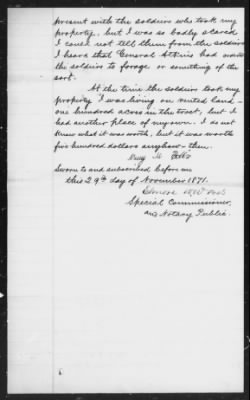 present with the soldiers who took my
property, but I was so badly scared
I could not tell them from the soldiers
I heard that General Atkins had
the soldiers to forage or something of the
sort.
At the time the soldiers took my
property I was living on rented land -
one hundred acres in the tract, but I
had another place of my own. I do not
know what it was worth, but it was worth
five hundred dollars anyhow - then.
Sworn to and subscribed before me
this 29th day of November 1871.
Special Commissioner
and Notary Public.